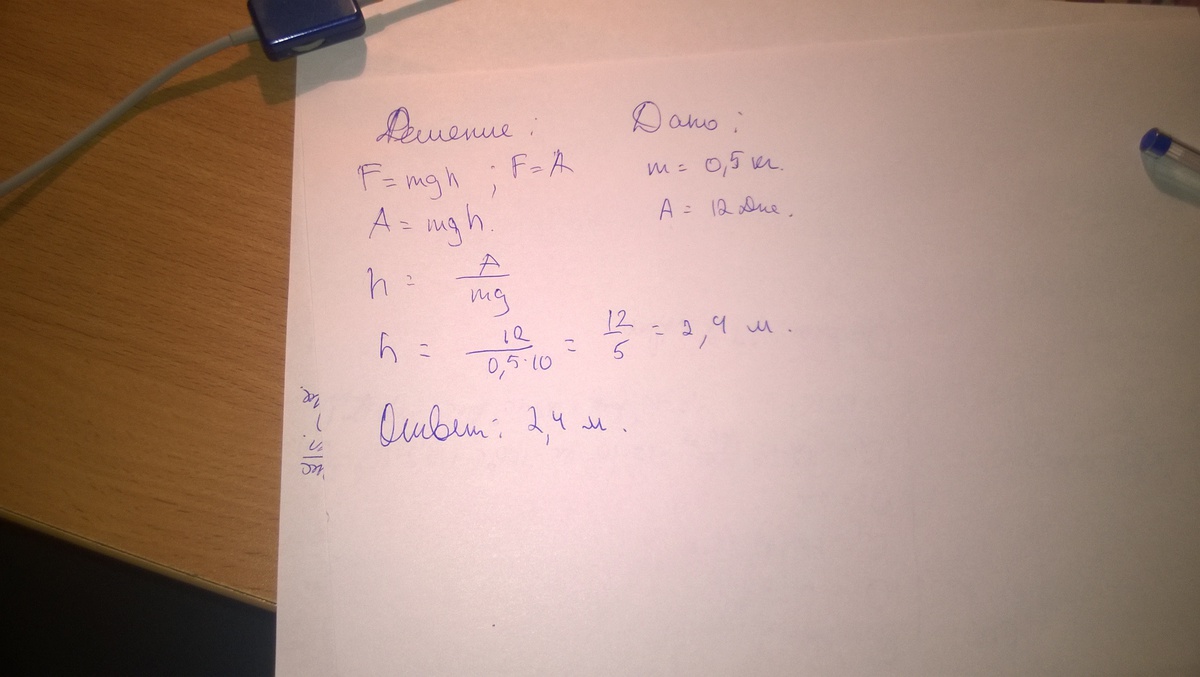 Решение:
F = mgh ; F = A
A = mgh.
h = A/mg
h = 12/0,5·10 = 12/5 = 2,4 м.
Ответ: 2,4 м.
Дано:
m = 0,5 кг.
A = 12 Дж.